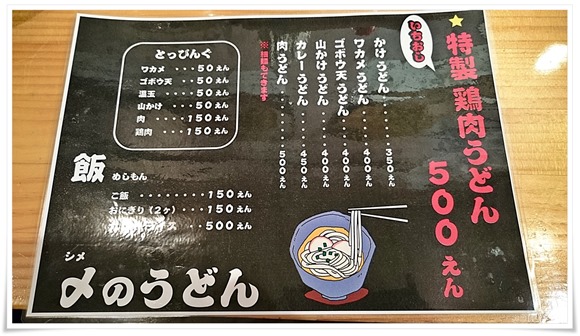 いちおし
特製 鶏肉うどん
500えん
かけうどん・・・・・・350えん
ワカメうどん・・・・・400えん
ゴボウ天うどん・・・・400えん
山かけうどん・・・・・400えん
カレーうどん・・・・・450えん
肉うどん・・・・・・・500えん
※細麺もできます
とっぴんぐ
ワカメ・・・・50えん
ゴボウ天・・・50えん
温玉・・・・・50えん
山かけ・・・・50えん
肉・・・・・150えん
鶏肉・・・・150えん
飯 めしもん
ご飯・・・・・・・・150えん
おにぎり(2ヶ)・・・150えん
ライス・・500えん
シメ
〆のうどん